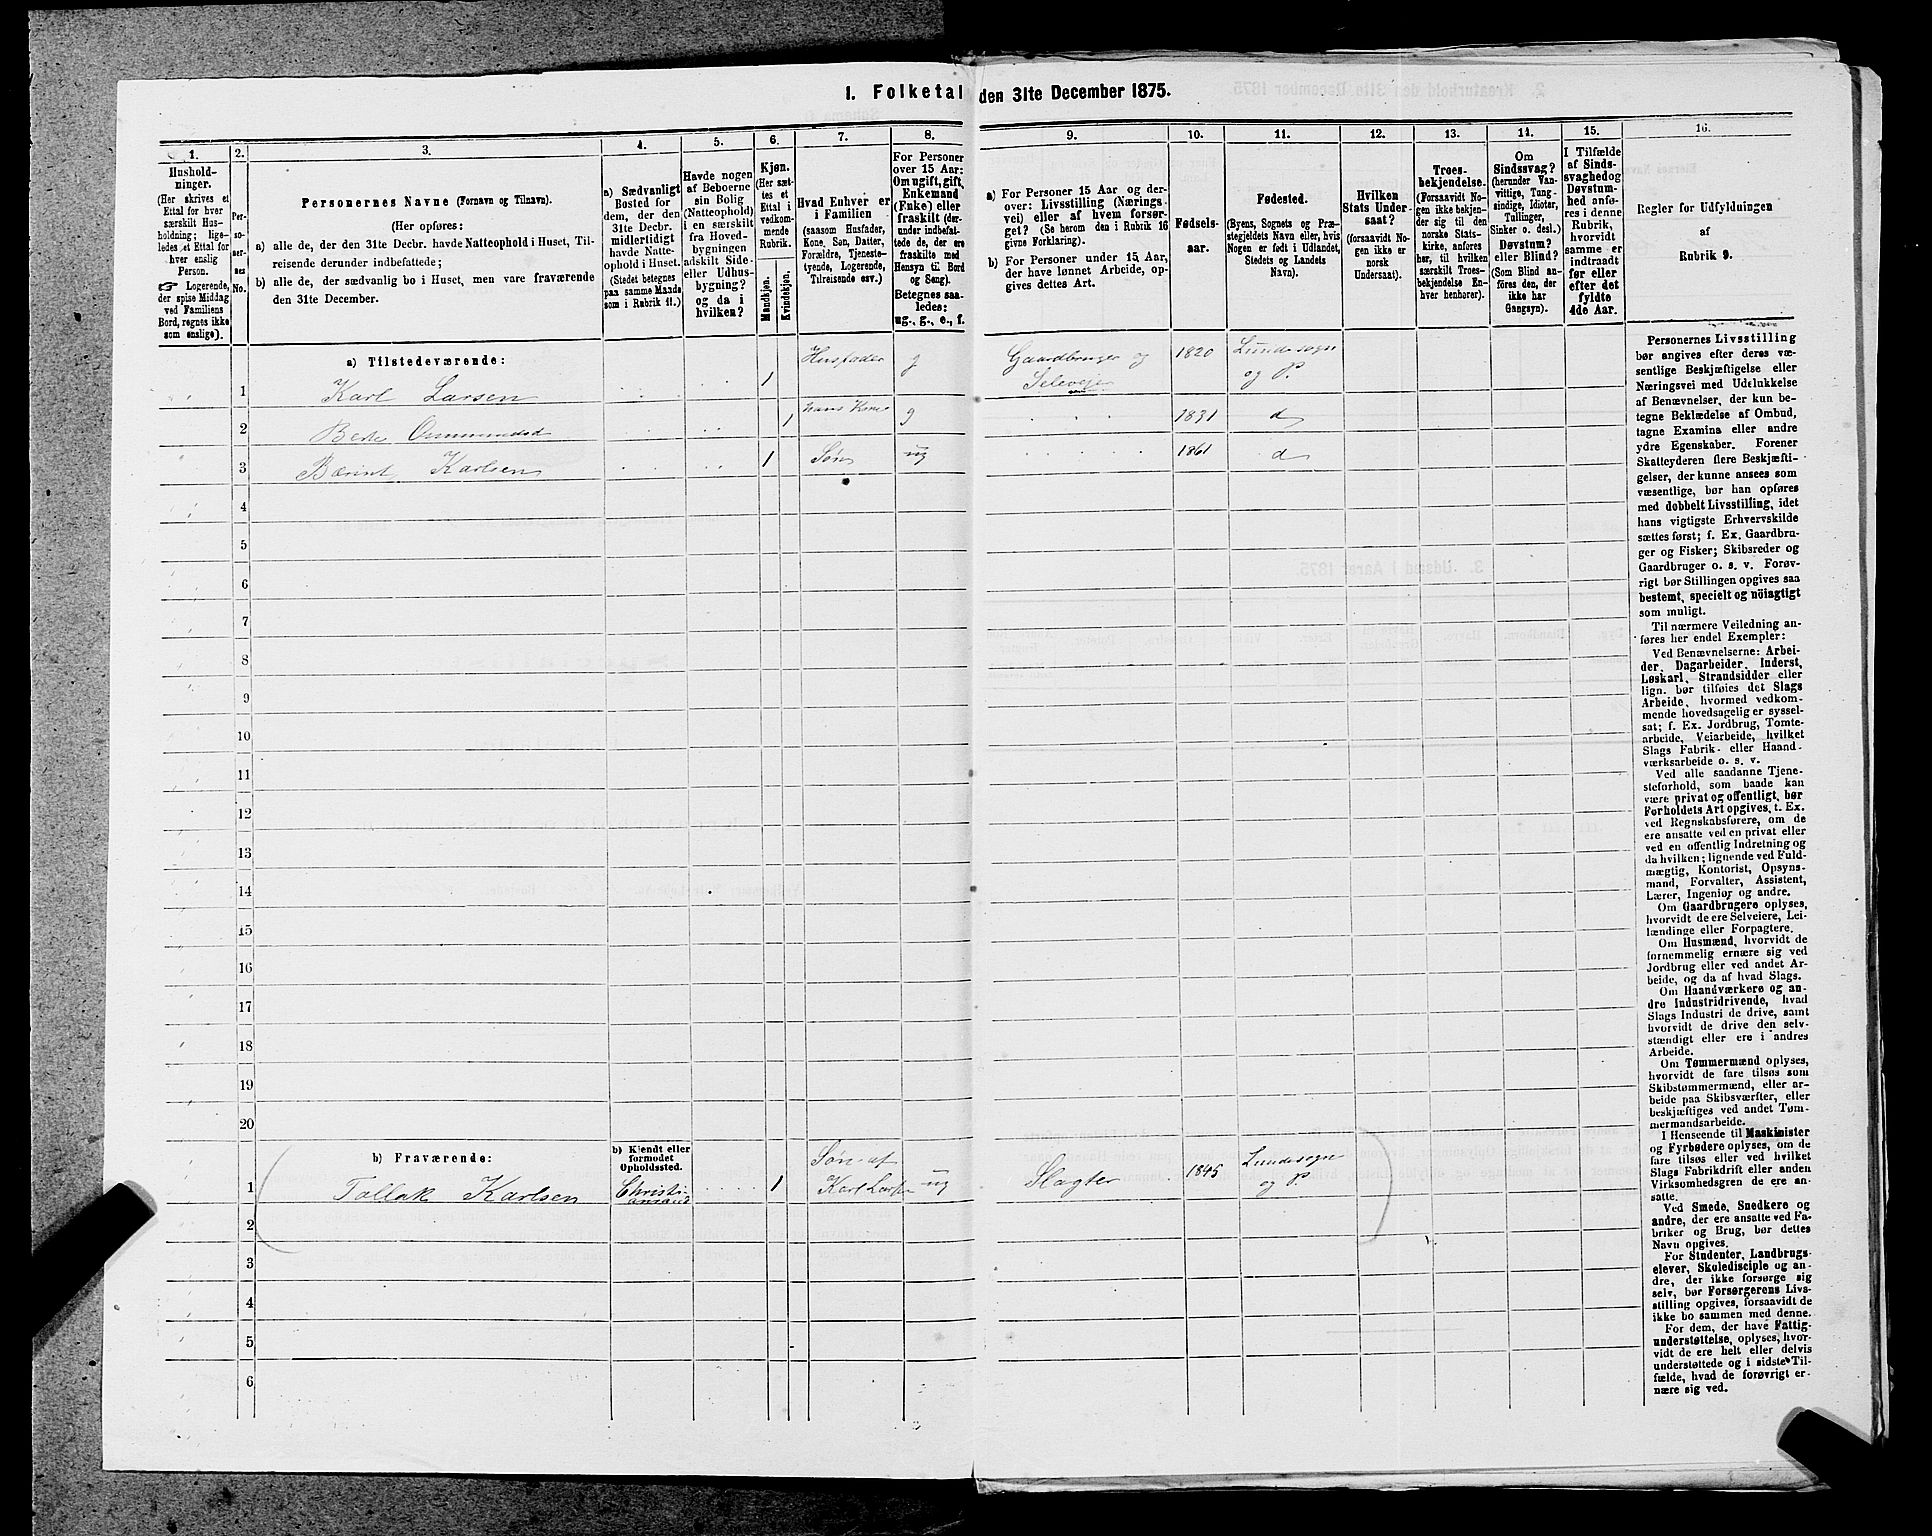 1. Folketal den 31te December 1875.
1.
2.
3.
4.
5.
6.
7.
8.
9.
10.
11.
12.
13.
14.
15.
16.
Hushold-
ninger.
(Her skrives et
Ettal for hver
særskilt Hus-
holdning; lige-
ledes et Ettal for
hver enslig
Person.
☞ Logerende,
der spise Middag
ved Familiens
Bord, regnes ikke
som enslige).
Per-
so-
ner-
nes
No.
Personernes Navne (Fornavn og Tilnavn).
(Her opføres:
a) alle de, der den 31te Decbr. havde Natteophold i Huset, Til-
reisende derunder indbefattede;
b) alle de, der sædvanlig bo i Huset, men vare fraværende
den 31te December.
a) Sædvanligt
Bosted for
dem, der den
31te Decbr.
midlertidigt
havde Natte-
ophold i Huset.
(Stedet betegnes
paa samme Maade
som i Rubrik 11.)
Havde nogen
af Beboerne
sin Bolig
(Natteophold)
i en særskilt
fra Hoved-
bygningen
adskilt Side-
eller Udhus-
bygning?
og da i
hvilken?
Kjøn.
(Her sæt-
tes et
Ettal i
vedkom-
mende
Rubrik.
Mandkjøn.
Kvindekjøn.
Hvad Enhver er
i Familien
(saasom Husfader,
Kone, Søn, Datter,
Forældre, Tjeneste-
tyende, Logerende,
Tilreisende osv.)
For Personer
over 15 Aar:
Om ugift, gift,
Enkemand
(Enke) eller
fraskilt (der-
under indbefat-
tede de, der ere
fraskilte med
Hensyn til Bord
og Seng).
Betegnes saa-
ledes:
ug., g., e., f.
a) For Personer 15 Aar og der-
over: Livsstilling (Nærings-
vei) eller af hvem forsør-
get? (Se herom den i Rubrik 16
givne Forklaring).
b) For Personer under 15 Aar,
der have lønnet Arbeide, op-
gives dettes Art.
Fødsels-
aar.
Fødested.
(Byens, Sognets og Præ-
stegjeldets Navn eller, hvis
Nogen er født i Udlandet,
Stedets og Landets
Navn).
Hvilken
Stats Under-
saat?
(forsaavidt No-
gen ikke er
norsk
Undersaat).
Troes-
bekjendelse.
(Forsaavidt No-
gen ikke bekjen-
der sig til den
norske Stats-
kirke, anføres
her, til hvilken
særskilt Troes-
bekjendelse En-
hver henhører).
Om
Sindssvag?
(herunder Van-
vittige, Tung-
sindige, Idioter,
Tullinger,
Sinker o. desl.)
Døvstum?
eller Blind?
(Som Blind an-
føres den, der
ikke har
Gangsyn).
I Tilfælde
af Sinds-
svaghed og
Døvstum-
hed anfø-
res i denne
Rubrik,
hvorvidt
samme er
indtraadt
før eller
efter det
fyldte
4de Aar.
Regler for Udfyldningen
af
Rubrik 9.
a) Tilstedeværende:
1 Karl Larsen 1 Husfader g Gaardbruger og Seleveier 1820 Lunde sogn og P.
2 Berte Ommundsd 1 hans Kone g 1831 d
3 Bærent Karlsen 1 Søn ug 1861 d
4
5
6
7
8
9
10
11
12
13
14
15
16
17
18
19
20
b) Fraværende:
b) Kjendt eller
formodet
Opholdssted.
1 Tallak Karlsen Christiansand 1 Søn af Karl Larsen ug Slagter 1845 Lunde sogn og P.
2
3
4
5
6
Personernes Livsstilling
bør angives efter deres væ-
sentlige Beskjæftigelse eller
Næringsvei med Udelukkelse
af Benævnelser, der kun be-
tegne Beklædelse af Ombud,
tagne Examina eller andre
ydre Egenskaber. Forener
Skatteyderen flere Beskjæfti-
gelser, der kunne ansees som
væsentlige, bør han opføres
med dobbelt Livsstilling, idet
hans vigtigste Erhvervskilde
sættes først; f. Ex. Gaardbru-
ger og Fisker; Skibsreder og
Gaardbruger o. s. v. Forøv-
rigt bør Stillingen opgives saa
bestemt, specielt og nöiagtigt
som muligt.
Til nærmere Veiledning an-
føres her endel Exempler:
Ved Benævnelserne: Arbei-
der, Dagarbeider, Inderst,
Løskarl, Strandsidder eller
lign. bør tilføies det Slags
Arbeide, hvormed vedkom-
mende hovedsagelig er syssel-
sat; f. Ex. Jordbrug, Tomte-
arbeide, Veiarbeide, hvilket
Slags Fabrik- eller Haand-
værksarbeide o. s. v.
Ved alle saadanne Tjene-
steforhold, som baade kan
være privat og offentligt, bør
Forholdets Art opgives, t. Ex.
ved Regnskabsførere, om de
ere ansatte ved en privat eller
ved en offentlig Indretning og
da hvilken; lignende ved Fuld-
mægtig, Kontorist, Opsyns-
mand, Forvalter, Assistent,
Lærer, Ingeniør og andre.
Om Gaardbrugere oplyses,
hvorvidt de ere Selveiere, Lei-
lændinge eller Forpagtere.
Om Husmænd, hvorvidt de
fornemmelig ernære sig ved
Jordbrug eller ved andet Ar-
beide, og da af hvad Slags.
Om Haandværkere og an-
dre Industridrivende, hvad
Slags Industri de drive, samt
hvorvidt de drive den selv-
stændigt eller ere i andres
Arbeide.
Om Tømmermænd oplyses,
hvorvidt de fare tilsøs som
Skibstømmermænd, eller ar-
beide paa Skibsværfter, eller
beskjæftiges ved andet Tøm-
mermandsarbeide.
I Henseende til Maskinister
og Fyrbødere oplyses, om de
fare tilsøs eller ved hvilket
Slags Fabrikdrift eller anden
Virksomhedsgren de ere an-
satte.
Ved Smede, Snedkere og
andre, der ere ansatte ved Fa-
briker og Brug, bør dettes
Navn opgives.
For Studenter, Landbrugs-
elever, Skoledisciple og an-
dre, der ikke forsørge sig
selv, bør Forsørgerens Livs-
stilling opgives, forsaavidt de
ikke bo sammen med denne.
For dem, der have Fattig-
understøttelse, oplyses, hvor-
vidt de ere helt eller delvis
understøttede og i sidste Til-
fælde, hvad de forøvrigt er-
nære sig ved.